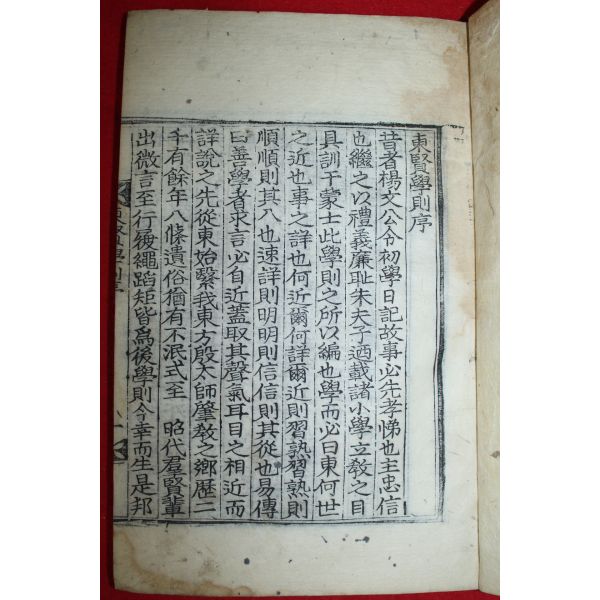 東賢學則序
昔者楊文公令初學日記故事必先孝悌也主忠信
也繼之以禮義廉耻朱夫子迺載諸小學立敎之目
具訓于蒙士此學則之所以編也學而必曰東何世
之近也事之詳也何近爾何詳爾近則習熟習熟則
順順則其入也速詳則明明則信信則其從也易傳
曰善學者求言必自近蓋取其聲氣耳目之相近而
詳說之先從東始繄我東方殷太師肇敎之鄕歷二
千有餘年八條遺俗猶有不泯式至 昭代羣賢輩
出微言至行後繩蹈矩皆爲後學則今幸而生是邦